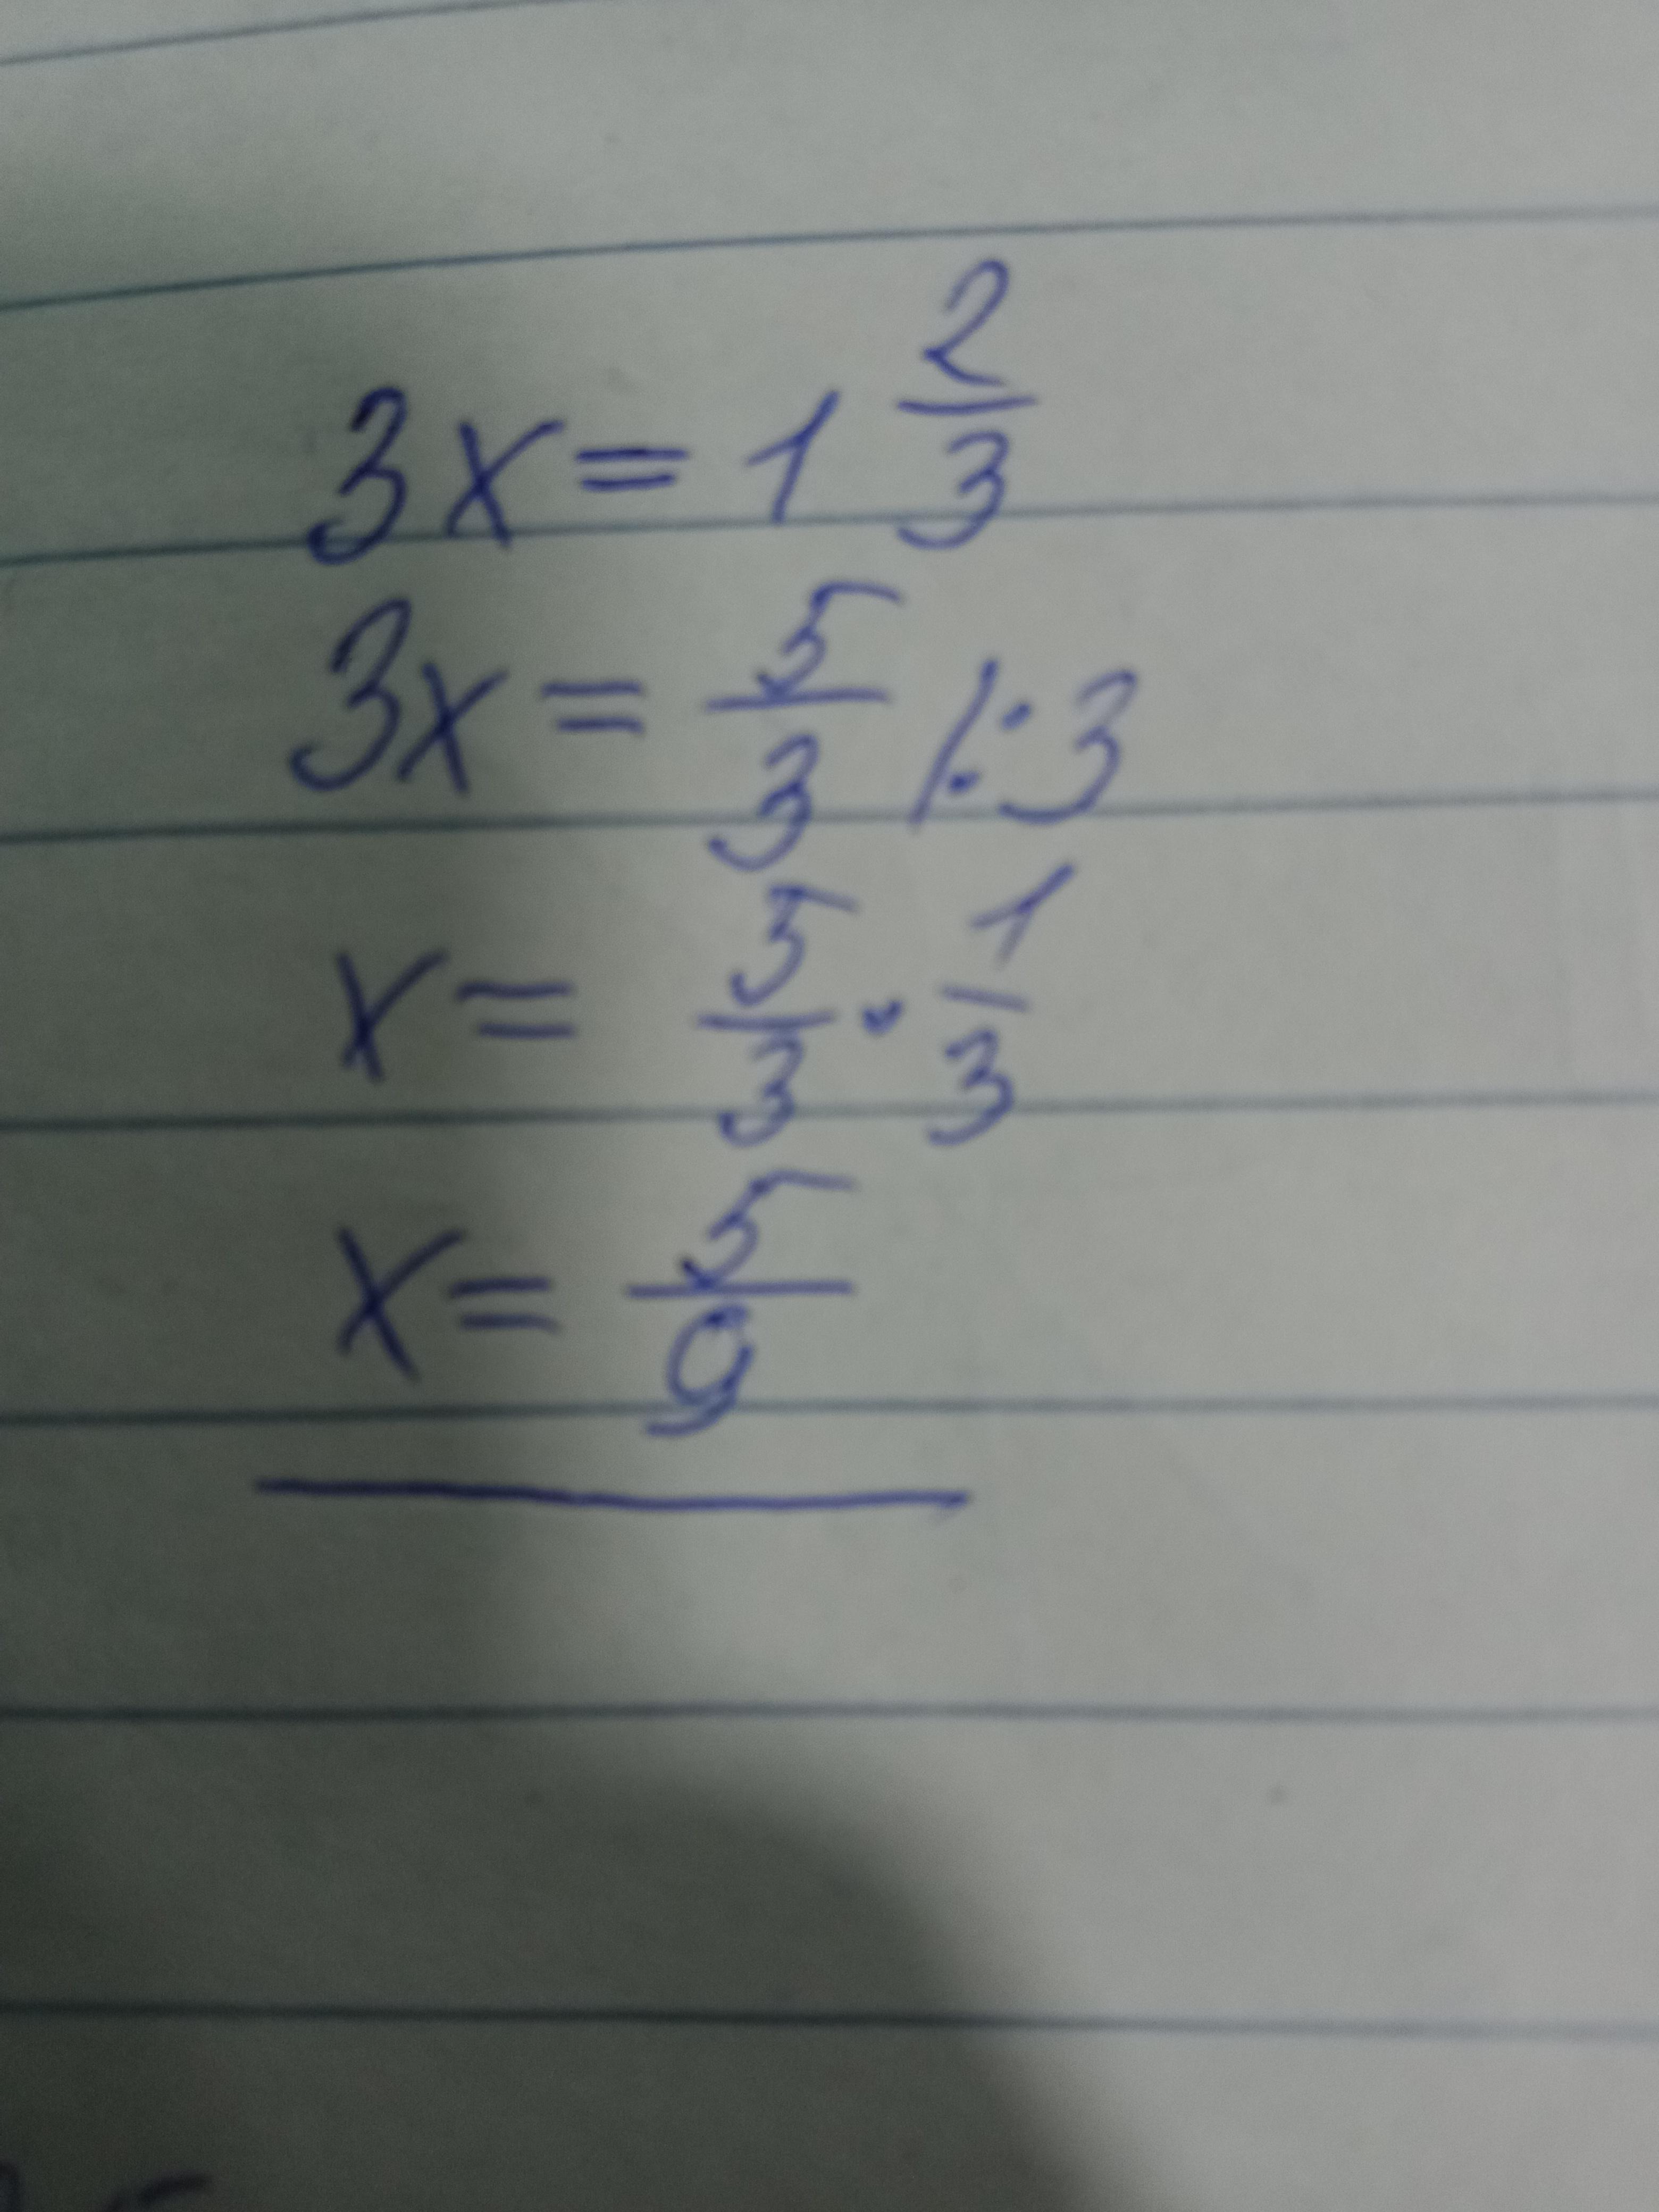 3x = 1 2/3
3x = 5/3 /:3
x = 5/3 · 1/3
x = 5/9